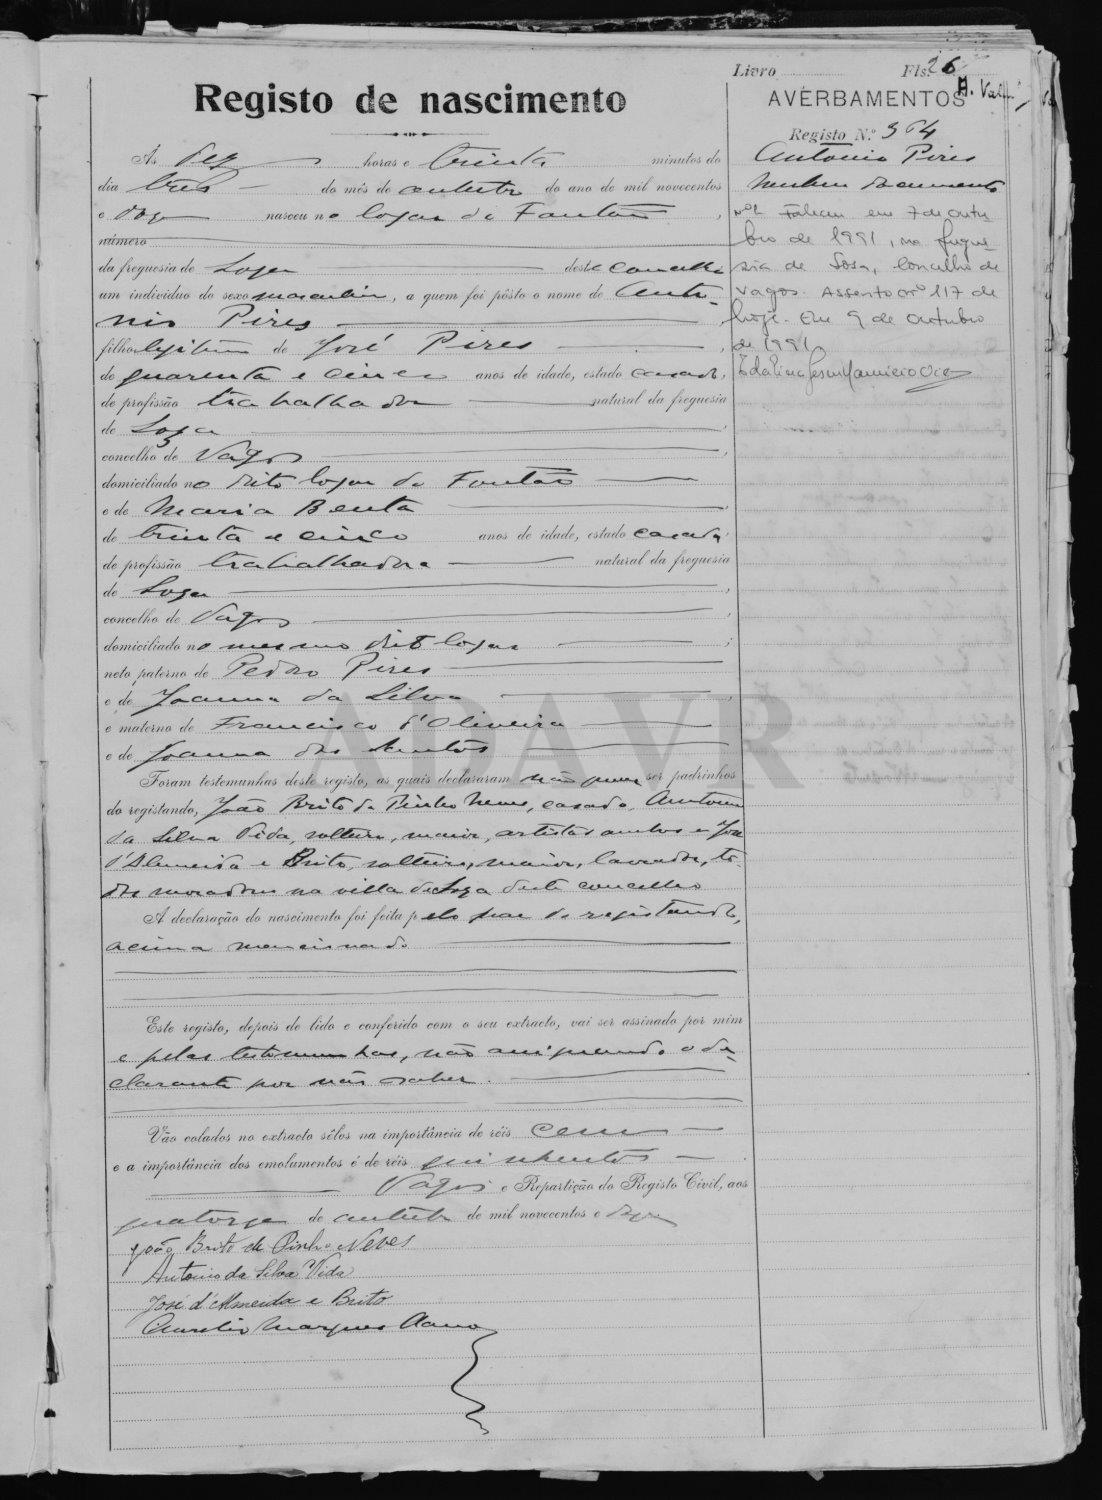 Livro Fls. 26
Registo de nascimento
AVERBAMENTOS
Registo N.º 364
Antonio Pires
Nenhum documento
Nº 1 Faleceu em 7 de Outu-
bro de 1991, na fregue-
sia de Sosa, Concelho de
Vagos. Assento nº 117 de
hoje. Em 9 de Outubro
de 1991
Às dez horas e trinta minutos do
dia tres do mês de outubro do ano de mil novecentos
e doze nasceu no logar de Fontão,
número
da freguesia de Soza deste concelho
um indivíduo do sexo masculin, a quem foi pôsto o nome de Anto-
nio Pires
filho legitimo de José Pires,
de quarenta e cinco anos de idade, estado casado,
de profissão trabalhador natural da freguesia
de Soza,
concelho de Vagos,
domiciliado no dito logar de Fontão
e de Maria Benta
de trinta e cinco anos de idade, estado casada,
de profissão trabalhadora natural da freguesia
de Soza,
concelho de Vagos,
domiciliado no mesmo dito logar;
neto paterno de Pedro Pires
e de Joanna da Silva,
e materno de Francisco d'Oliveira
e de Joanna dos Santos
Foram testemunhas deste registo, as quais declararam não serem ser padrinhos
do registando, João Brito de Pinho Neves, casado, Antonio
da Silva Vida, solteiro, maior, artistas ambos e José
d'Almeida e Brito, solteiro, maior, lavrador, to-
dos moradores na villa de Soza deste concelho
A declaração do nascimento foi feita pelo pae do registando,
acima mencionado
Este registo, depois de lido e conferido com o seu extracto, vai ser assinado por mim
e pelas testemunhas, não assignando o de-
clarante por não saber.
Vão colados no extracto sêlos na importância de réis cem
e a importância dos emolumentos é de réis quinhentos
Vagos e Repartição do Registo Civil, aos
quatorze de outubro de mil novecentos e doze
João Brito de Pinho Neves
Antonio da Silva Vida
José d'Almeida e Brito
Aurelio Marques
ADAVR